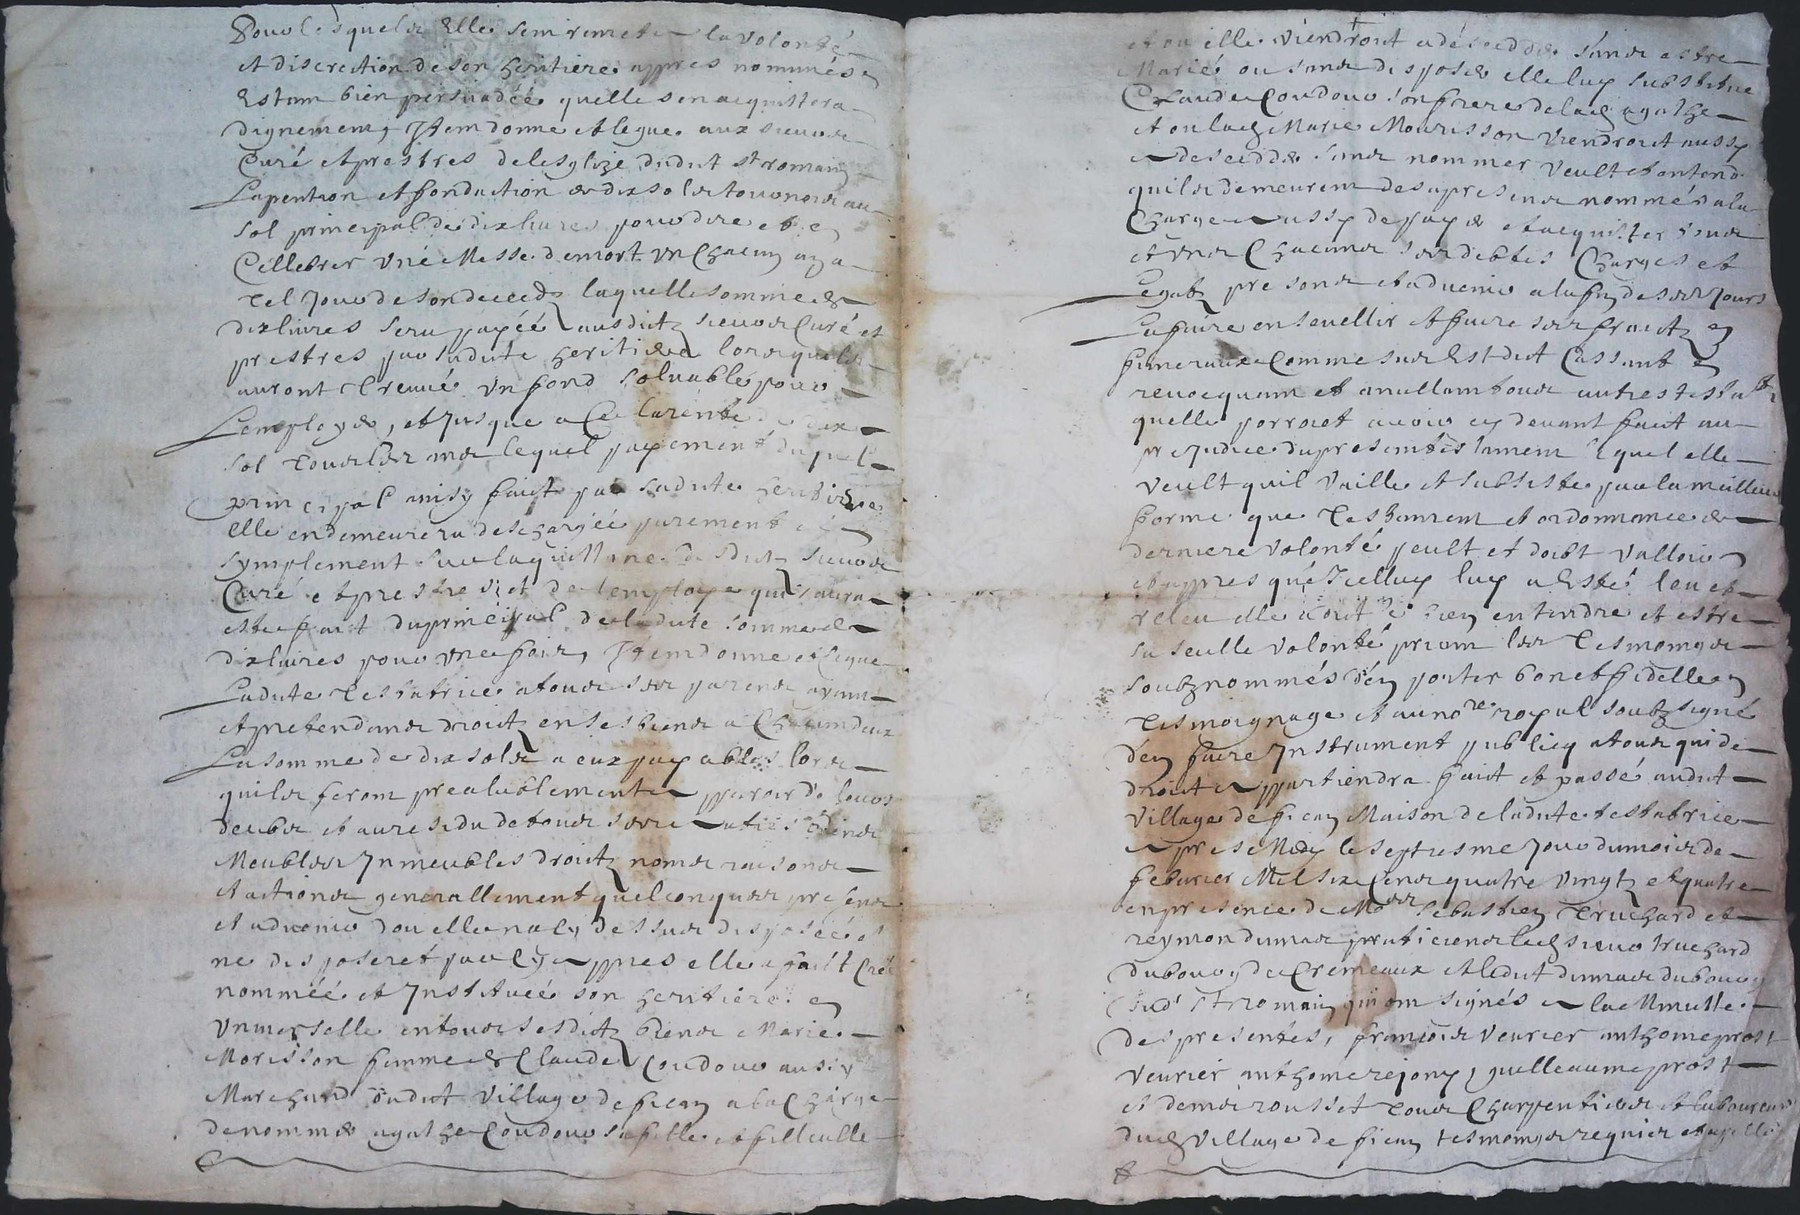 Pour lesquels Elle sen remet a la volonté
et discretion de son heritiere appres nommée
Estam bien persuadée quelle sen acquittera
dignement, Item donne et legue aux sieurs
Curé et prestres de lesglize dudit st romain
La pention et fondaction de dix sols tournois au
sol principal de dix livres pour dire et
Cellebrer Une Messe de mort Un Chacun an a
tel Jour de son decedz laquelle somme de
dix livres sera payée ausdictz sieurs Curé et
prestres par sadite heritiere lorsquils
auront treuvé un fond solvable pour
Lemployer, et Jusque a Ce la rente de dix
sol tous les ans lequel payement du sol
principal ainsy faict par sadite heritiere
elle en demeurera deschargée purement et
symplement sur la quittance desdictz sieurs
Curé et prestres et de lemploye qui aura
esté faict du principal de ladite somme de
dix livres pour une fois, Item donne et legue
Ladite testatrice a tous ses parens ayant
et pretendans droictz en ses biens a Chacun deux
La somme de dix sols a eux payables lors
quils feront prealablement apparoir de leurs
deubz et au residu de tous ses autres biens
Meubles Inmeubles droictz noms raisons
et actions generallement quelconques presens
et advenir dou elle na cy dessus disposée et
ne disposeret par cy appres elle a faict Créé
nommée et Instituée son heritiere
Universelle en tous sesdictz biens Marie
Morisson femme de Claude Coudour aussy
Marchand dudit Village de fican a la Charge
de nommer agathe Coudour sa fille et filleulle
et ou elle viendroit a desceder sans estre
Mariée ou sans disposer elle luy substitue
Claude Coudour son frere de lad agathe
et ou lad Marie Mourisson viendroit aussy
a desceder sans nommer Veult et entend
quils demeurent des apresens nommés a la
Charge aussy de payer et acquitter tous
et Uns Chacuns ses debtes Charges et
Legatz presens et advenir a la fin de ses Jours
La faire ensevellir et faire ses fraictz
funeraux Comme sus Est dit Cassant
revocquant et anullant tous autres testatz
quelle porroit avoir cy devant faict au
prejudice du present testament lequel elle
Veult quil Vaille et subsiste par la meilleure
forme que testament et ordonnance de
derniere volonté peult et doibt valloir
et appres que Icelluy luy a Esté leu et
releu elle a dit le bien entendre et estre
sa seulle volonté priant les tesmoings
soubznommés den porter bon et fidelle
tesmoignage et au nore royal soubzsigné
den faire Instrument publicq a tous qui de
droict appartiendra faict et passé audit
village de fican Maison de ladite testatrice
apres Midy le septiesme Jour du mois de
febvrier Mil six Cens quatre vingtz et quatre
en presence de Mes sebastien truchard et
reymon dumas praticiens led sieur truchard
du bourg de Cremeaux et ledit dumas du bourg
dud st romain qui ont signés a la Minutte
des presentes, francois veurier anthome prost
veurier anthome rejony, guelleaume prost
et denis rousset tous Charpentiers et laboureurs
dud village de fican tesmoings requier et apellé